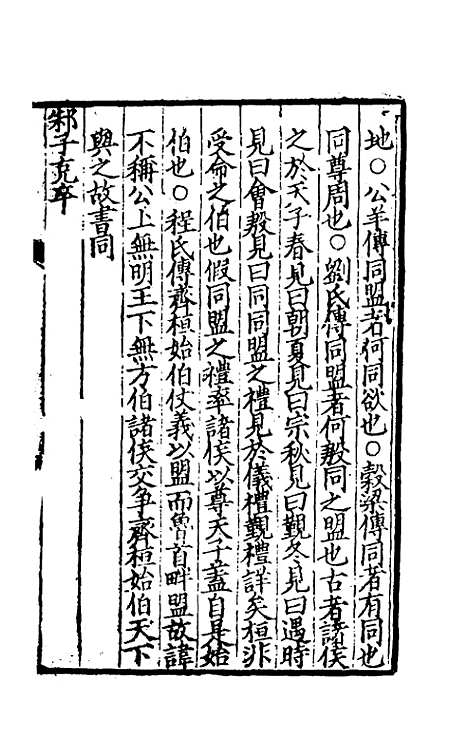 地○公羊傳同盟者何同欲也○穀梁傳同者有同也
同尊周也○劉氏傳同盟者何殷同之盟也古者諸侯
之於天子春見曰朝夏見曰宗秋見曰覲冬見曰遇時
見曰會殷見曰同同盟之禮見於儀禮覲禮詳矣桓非
受命之伯也假同盟之禮率諸侯以尊天子蓋自是始
伯也○程氏傳齊桓始伯仗義以盟而魯首畔盟故諱
不稱公上無明王下無方伯諸侯交爭齊桓始伯天下
與之故書同
邾子克卒